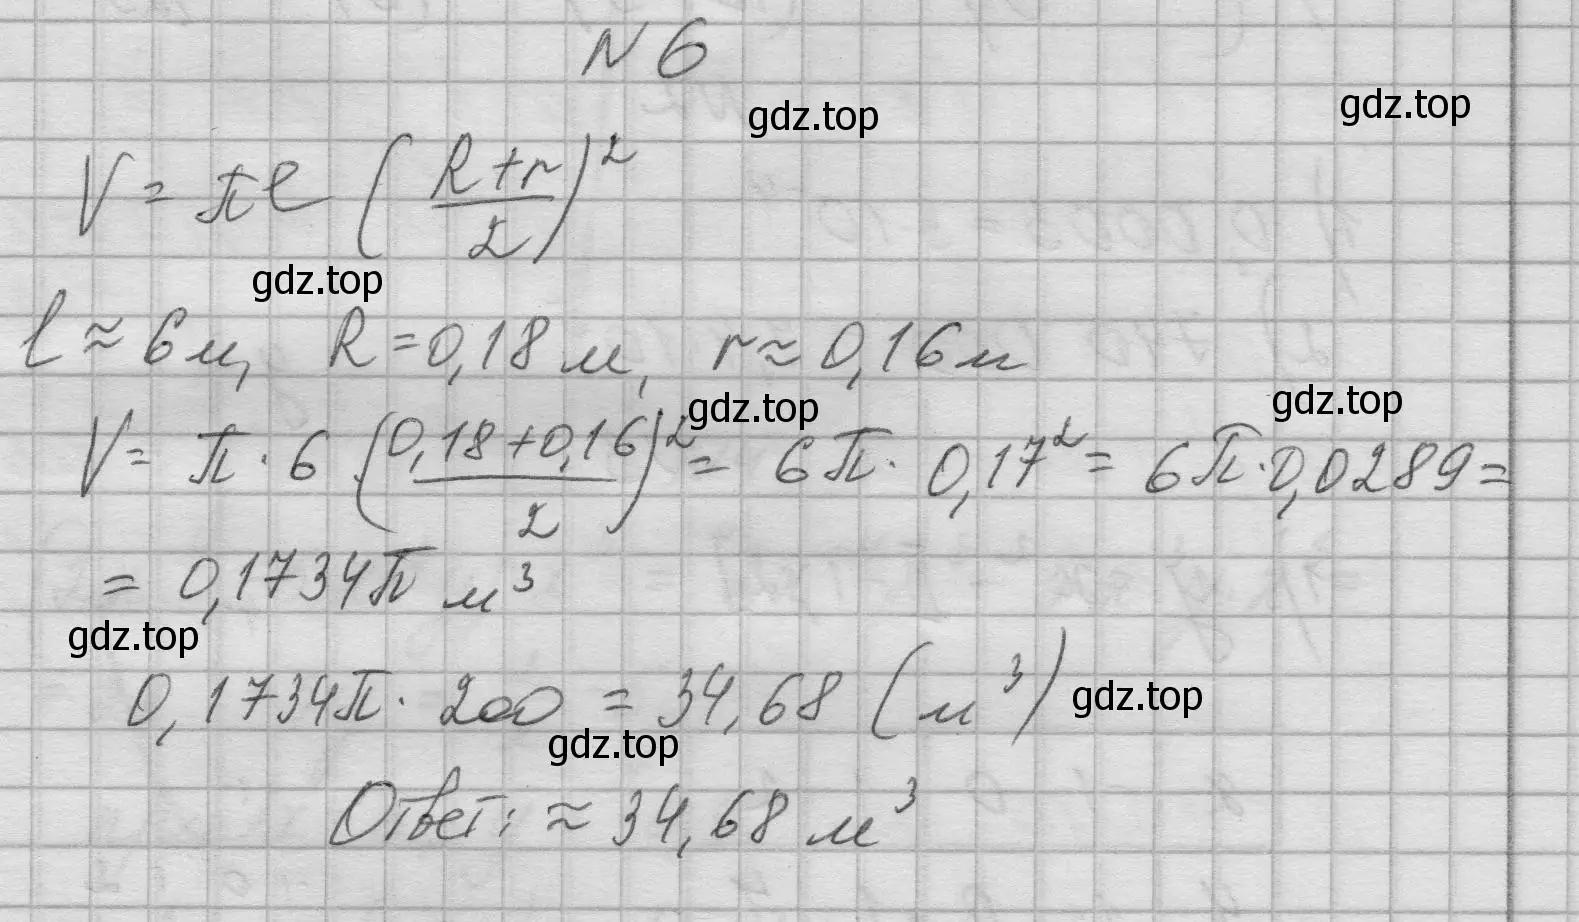 N 6
gdz.top
gdz.top
V = πl (R+r/2)²
gdz.top
l ≈ 6м, R = 0,18 м, r ≈ 0,16 м
gdz.top
gdz.top
V = π · 6 (0,18+0,16/2)² = 6π · 0,17² = 6π · 0,0289 =
= 0,1734π м³
gdz.top
0,1734π · 200 = 34,68 (м³)
gdz.top
gdz.top
Ответ: ≈ 34,68 м³